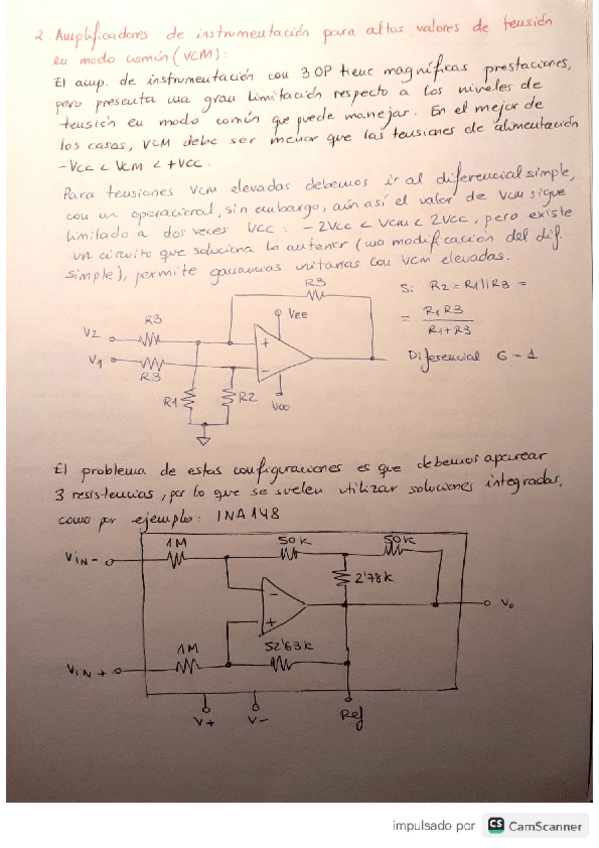 2. Amplificadores de instrumentación para altos valores de tensión
en modo común (VCM):
El amp. de instrumentación con 3 OP tiene magníficas prestaciones,
pero presenta una gran limitación respecto a los niveles de
tensión en modo común que puede manejar. En el mejor de
los casos, VCM debe ser menor que las tensiones de alimentación
-Vcc < VCM < +Vcc.
Para tensiones VCM elevadas debemos ir al diferencial simple,
con un operacional, sin embargo, aún así el valor de VCM sigue
limitado a dos veces Vcc: -2Vcc < VCM < 2Vcc, pero existe
un circuito que soluciona lo anterior (una modificación del dif.
simple), permite ganancias unitarias con VCM elevadas.
R3
Si R2 = R1||R3 =
= R1 R3
R1+R3
Diferencial G-1
VEE
R3
V2
V1
R3
+
-
R1
R2
VDD
El problema de estas configuraciones es que debemos aparear
3 resistencias, por lo que se suelen utilizar soluciones integradas,
como por ejemplo: INA148
1M
50K
50K
VIN-
2'78K
-
+
Vo
1M
52'63K
VIN+
V+
V-
Ref
impulsado por CS CamScanner